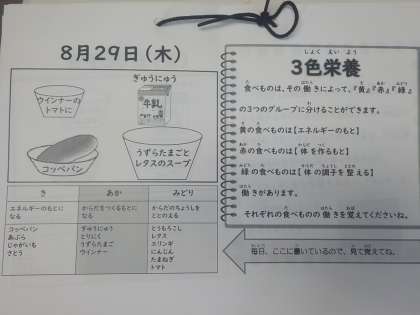 8月29日(木)
ぎゅうにゅう
牛乳
ウインナーの
トマトに
うずらたまごと
レタスのスープ
コッペパン
き
あか
みどり
エネルギーのもとに
なる
からだをつくるもとに
なる
からだのちょうしを
ととのえる
コッペパン
あぶら
じゃがいも
さとう
ぎゅうにゅう
とりにく
うずらたまご
ウインナー
とうもろこし
レタス
エリンギ
にんじん
たまねぎ
トマト
しょくえいよう
3色栄養
食べものは、その働きによって、『黄』『赤』『緑』
の3つのグループに分けることができます。
黄の食べものは【エネルギーのもと】
赤の食べものは【体を作るもと】
緑の食べものは【体の調子を整える】
働きがあります。
それぞれの食べものの働きを覚えてくださいね。
毎日、ここに書いているので、見て覚えてね。